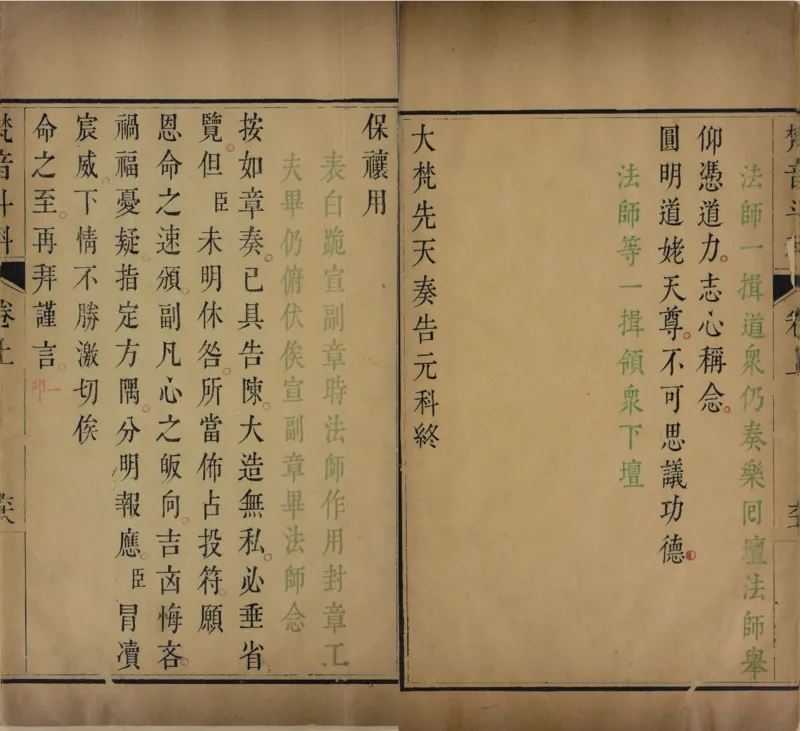 法師一揖道衆仍奏樂囘壇法師舉
仰憑道力。志心稱念。
圓明道姥天尊。不可思議功德。
法師等一揖領衆下壇
大梵先天奏告元科終
保禳用
表白跪宣副章時法師作用封章工
夫畢仍俯伏俟宣副章畢法師念
按如章奏。已具告陳。大造無私。必垂省
覽。但臣未明休咎。所當佈占投符。願
恩命之速頒。副凡心之皈向。吉凶悔吝。
禍福憂疑。指定方隅。分明報應。臣冒瀆
宸威。下情不勝激切俟
命之至。再拜謹言。一叩
梵音斗科 卷上